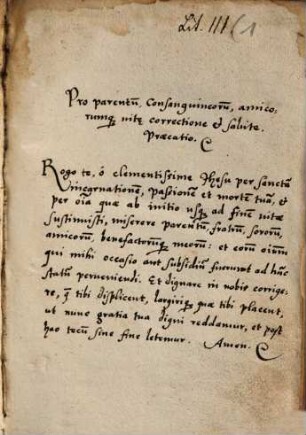 Lit. III (1
Pro parentũ, Consanguineorũ, amico-
rumq́; uitę correctione et salute.
Præcatio.
Rogo te, ó clementissime Jhesu per sanctã
incarnationem, passionẽ et mortẽ tuã, et
per oĩa quæ ab initio usq́; ad finẽ uitæ
sustinuisti, miserere parentũ, fratrũ, sororũ,
amicorũ, benefactorũq́; meorũ: et eorũ oĩum
qui mihi occasio aut subsidiũ fuerunt ad hũc
statũ perueniendi. Et dignare in nobis corrige-
re, q̃ tibi displicent, largiriq́; quæ tibi placent,
ut nunc gratia tua digni reddamur, et post
hac tecũ sine fine letemur. Amen.